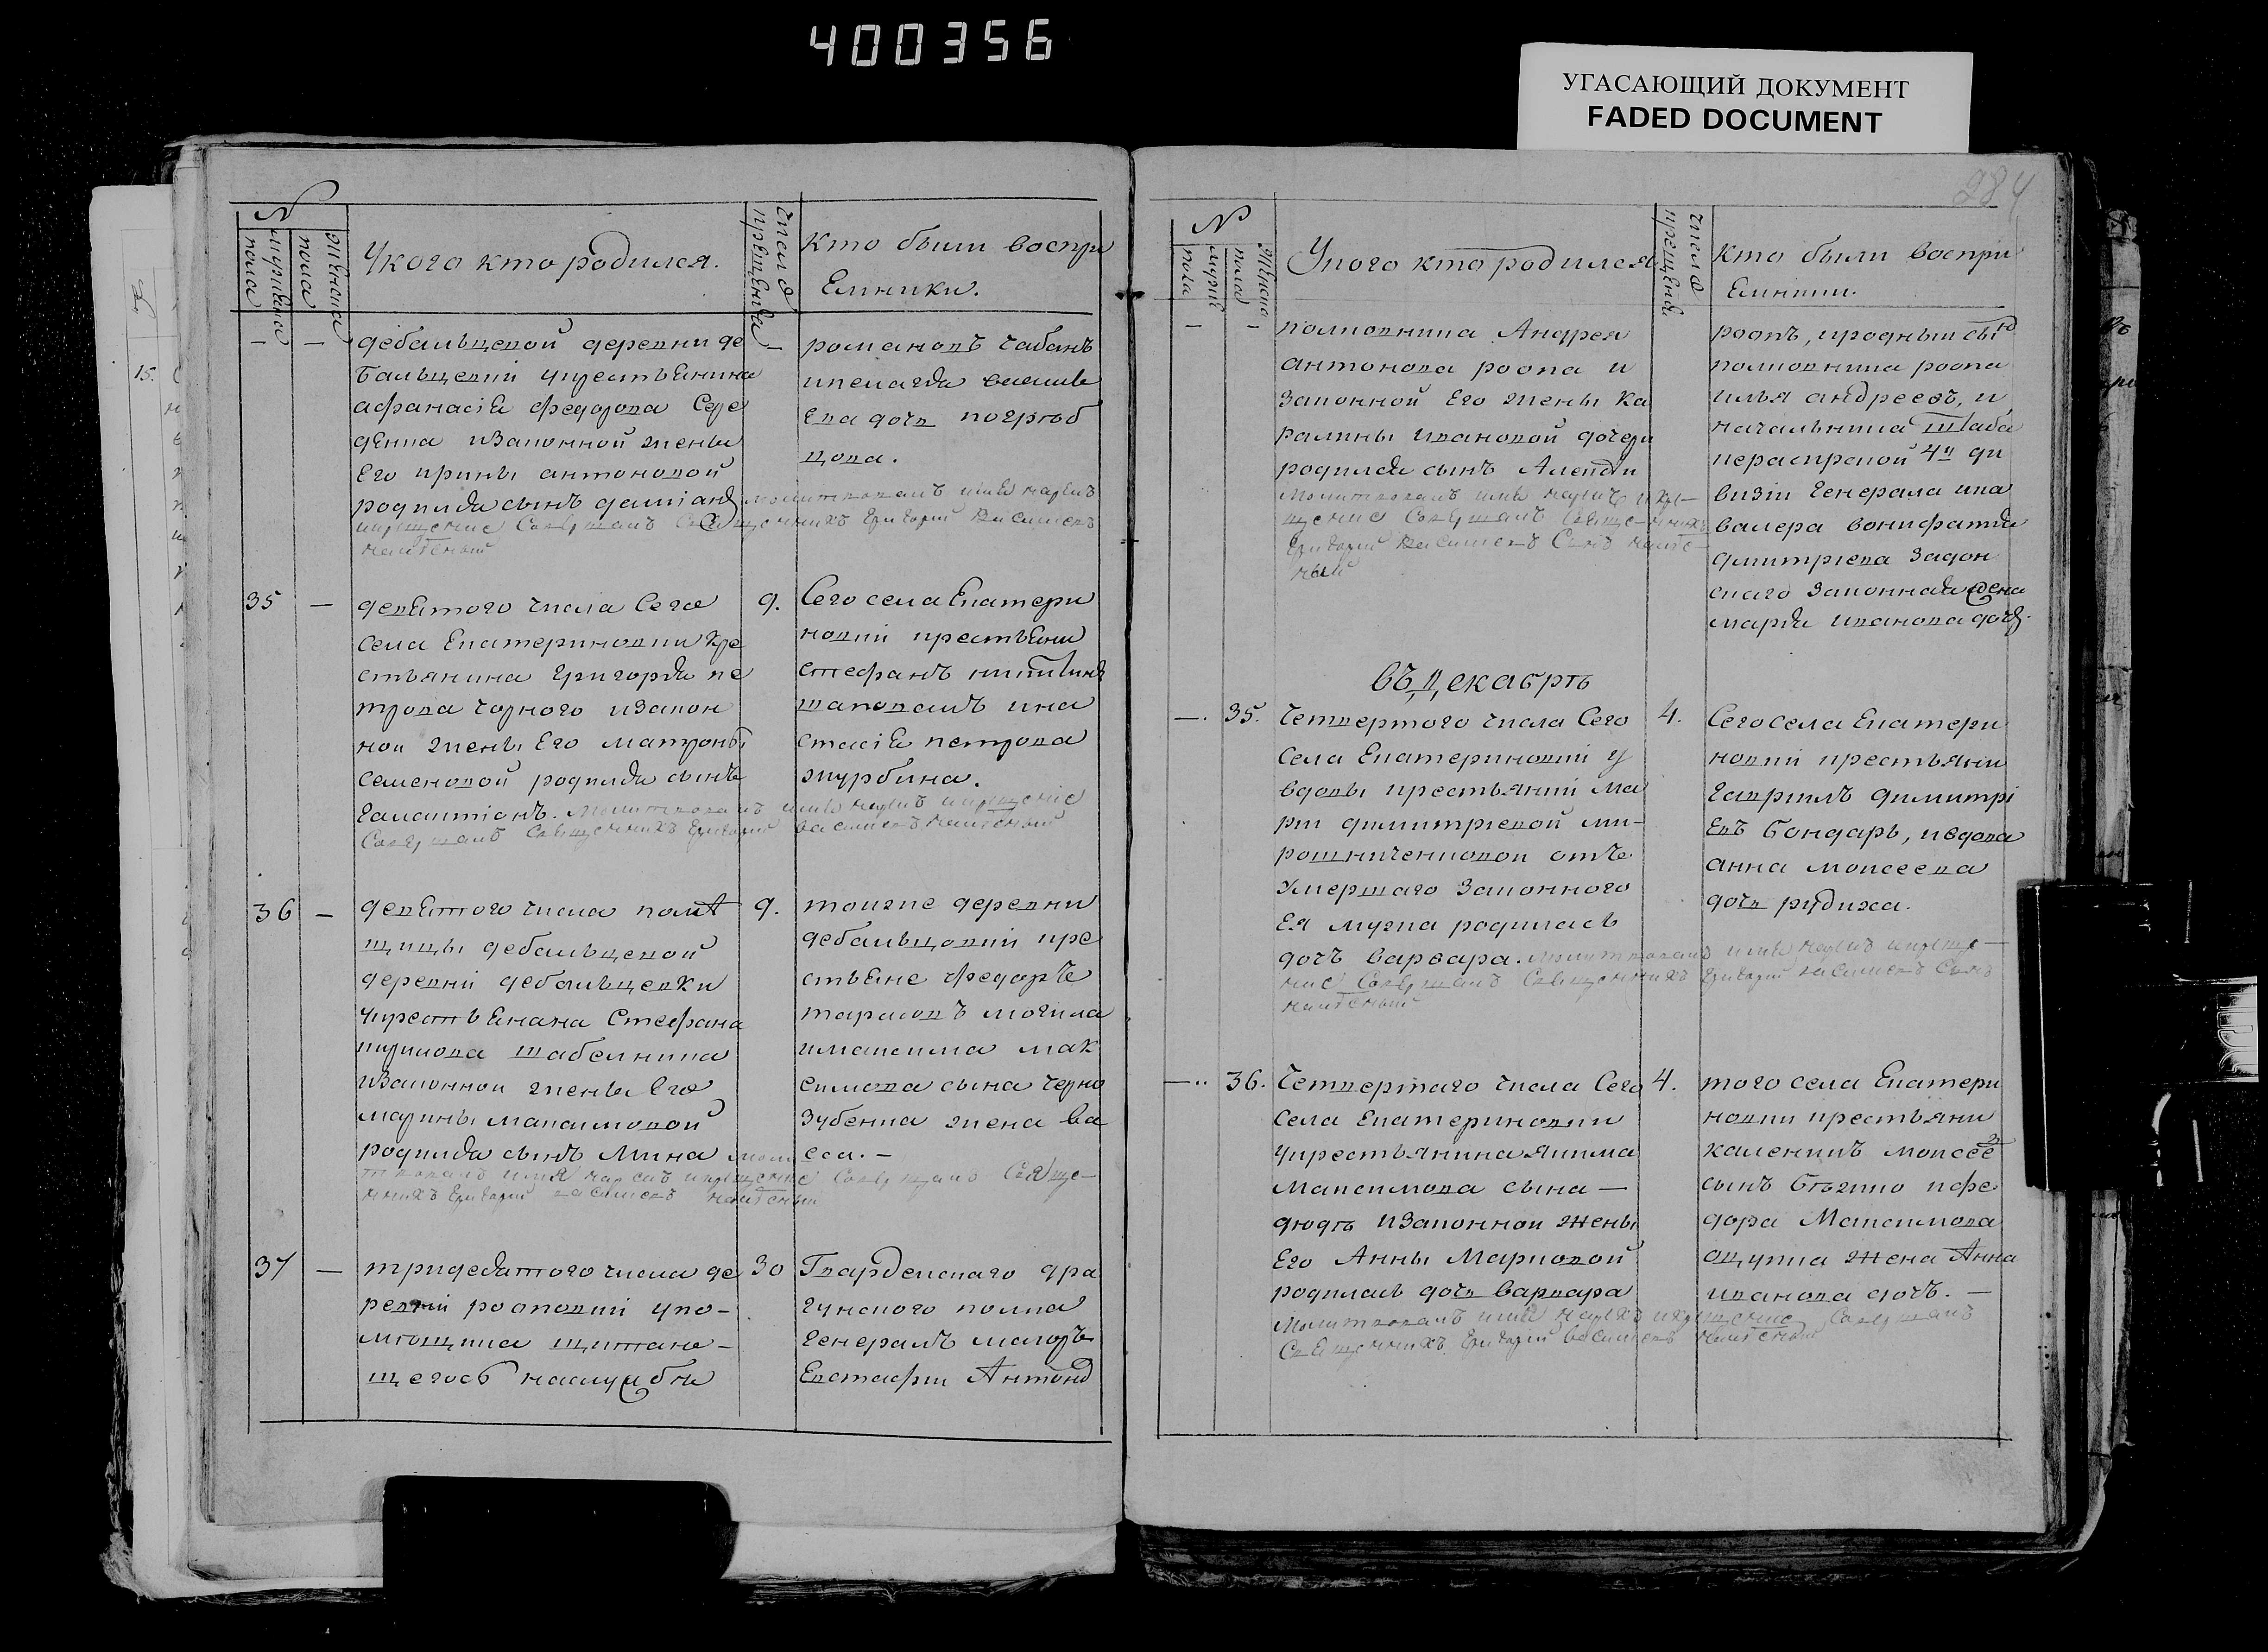 400356
УГАСАЮЩИЙ ДОКУМЕНТ
FADED DOCUMENT
№
мужеска пола
женска пола
У кого кто родился.
числа крещения
кто были воспри
Емники.
— — дебальцевой деревни де —
бальцевки у крестьянина
афанасія федорова
денка и законной жены
Его ирины антоновой
родился сынъ даміанъ молитвовалъ имя нарекъ
и крещение совершалъ священникъ Григорий Василиевъ
романовъ чабанъ
и пелагея василь
Ева дочь погребѣ
цова.
35 — девятого числа Сего 9.
села Екатериновки кре
стьянина григория пе
трова чорного и закон
ной жены Его матроны
семеновой родился сынъ
галактионъ. молитвовалъ имя нарекъ и крещение
Совершалъ Священникъ Григорий Василиевъ
Сего села Екатери
новки крестьяни
стефанъ никитинъ
шаповалъ и на
стасія петрова
журбина.
36 — девятого числа помѣ 9.
щицы дебальцевой
деревни дебальцевки
у крестьянина Стефана
шабелника
и законной жены Его
марины максимовой
родился сынъ Мина моли
твовалъ имя нарекъ и крещение Совершалъ Свяще-
нникъ Григорий Василиевъ
тойже деревни
дебальцовки кре
стьяне федоръ
тарасовъ могила
и максима мак
симова сына черно
зубенка жена ва
сса. —
37 — тридесятого числа де 30
ревни рооповки у по-
мѣщика щитаю-
щегось на службѣ
Гвардейскаго дра
гунского полка
генералъ маіоръ
Евстафій Антоно
284
№
мужес пола
женска пола
У кого кто родился
числа крещения
кто были воспри
Емники.
— — полковника Андрея
антонова роопа и
законной Его жены Ка
ралины ивановой дочери
родился сынъ Алексѣй
молитвовалъ имя нарекъ и кре-
щение Совершалъ Священникъ
Григорий Василиевъ Сынъ
роопъ, и родный сынъ
полковника роопа
илья андреевъ, и
начальника Штаба
кирасирской 4й ди
визіи генерала и ка
валера вонифатія
димитріева Задон
скаго законная жена
марья иванова дочь.
въ Декабрѣ
— 35. четвертого числа Сего 4.
села Екатериновки у
вдовы крестьянки Ма
ріи димитріевой ми-
рошниченковой отъ
умершаго законного
Ея мужа родилась
дочъ варвара. молитвовалъ имя нарекъ и креще-
ние Совершалъ Священникъ Григорий Василиевъ Сынъ
Сего села Екатери
новки крестьяни
гавриилъ димитрі
Евъ бондарь, и вдова
анна моисеева
дочь рудиха.
— 36. четвертаго числа Сего 4.
села Екатериновки
у крестьянина якима
Максимова сына —
дюдѣ и законной жены
Его Анны Марковой
родилась дочь варвара
молитвовалъ имя нарекъ и крещение Совершалъ
Священникъ Григорий Василиевъ
того села Екатери
новки крестьяни
каленикъ моисеѣ
сынъ бѣжко и фе
дора Максимова
ацупка жена Анна
иванова дочъ. —